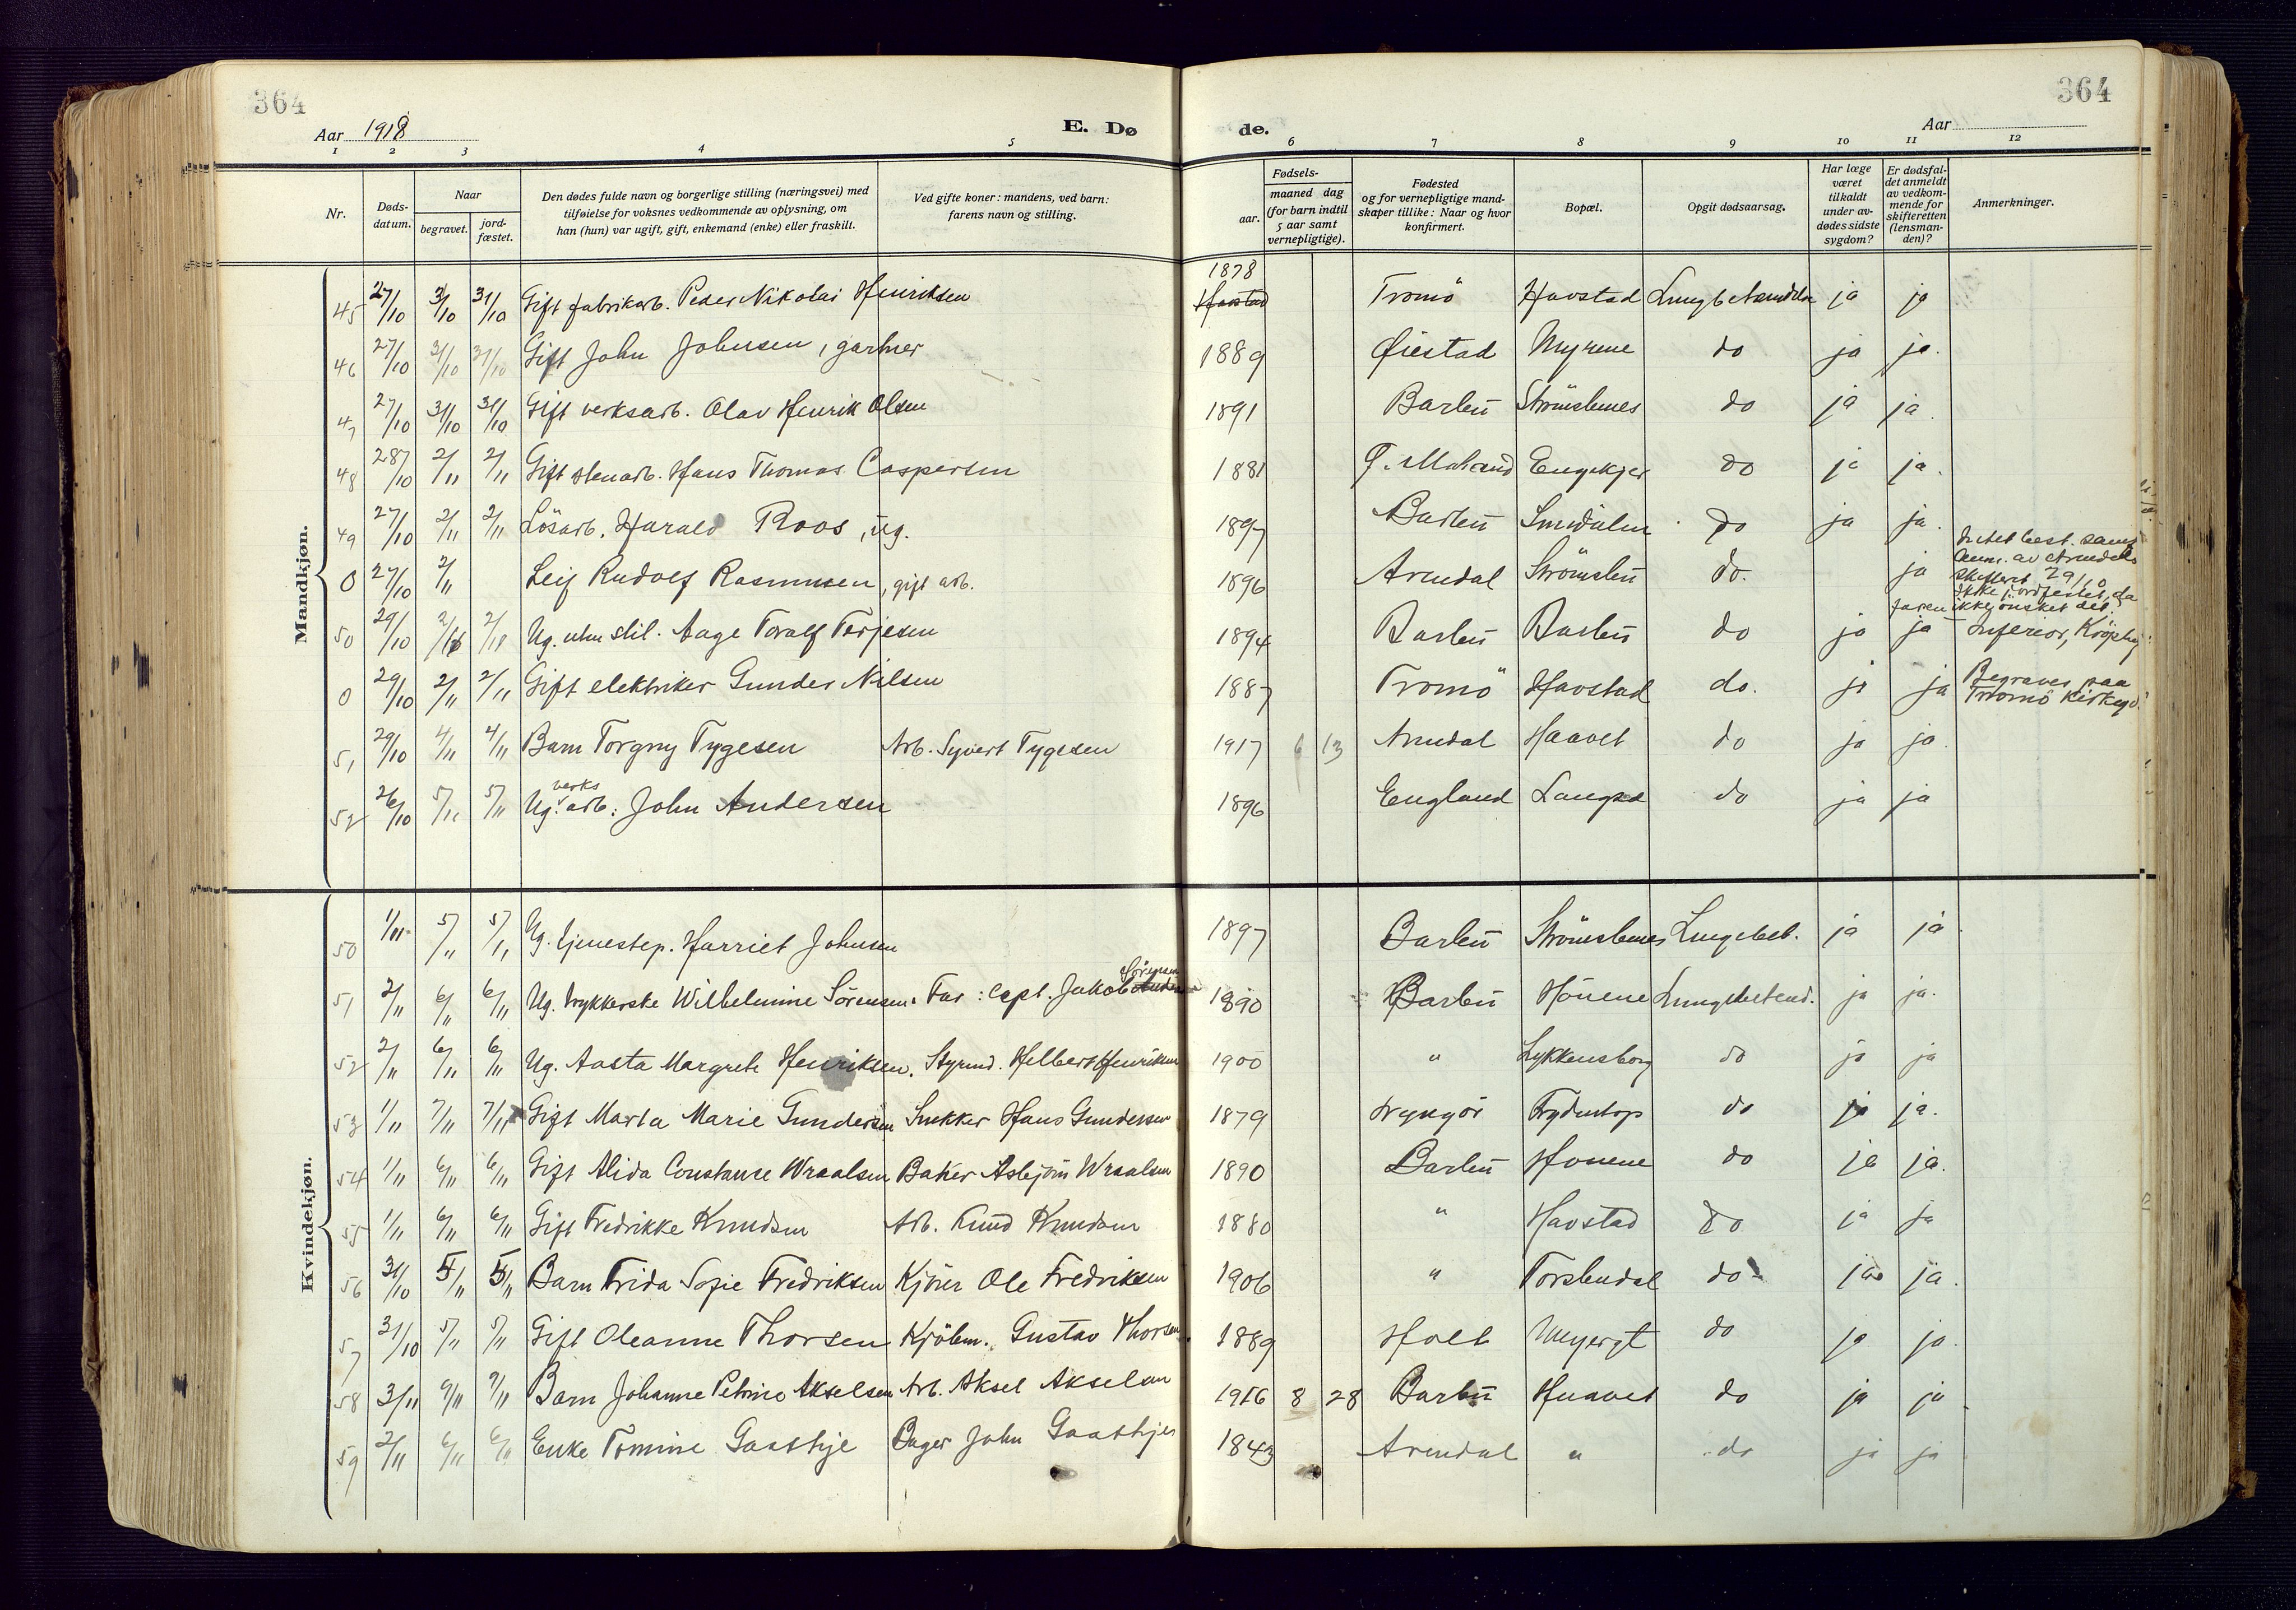 364
364
Aar 1918
E. Dø
de.
Aar
1 2 3 4 5 6 7 8 9 10 11 12
Nr.
Døds-datum.
Naar
begravet.
jord-fæstet.
Den dødes fulde navn og borgerlige stilling (næringsvei) med tilføielse for voksnes vedkommende av oplysning, om han (hun) var ugift, gift, enkemand (enke) eller fraskilt.
Ved gifte koner: mandens, ved barn: farens navn og stilling.
Fødsels-
aar.
maaned dag (for barn indtil 5 aar samt vernepligtige).
Fødested og for vernepligtige mandskaper tillike: Naar og hvor konfirmert.
Bopæl.
Opgit dødsaarsag.
Har læge været tilkaldt under avdødes sidste sygdom?
Er dødsfaldet anmeldt av vedkommende for skifteretten (lensmanden)?
Anmerkninger.
Mandkjøn.
45 27/10 31/10 31/10 Gift fabrikarb. Peder Nikolai Henriksen 1878 Havstad Tromö Havstad Lungebetændelse ja ja
46 27/10 31/10 31/10 Gift John Johnsen, gartner 1889 Øiestad Myrene do ja ja.
47 27/10 31/10 31/10 Gift verksarb. Olav Henrik Olsen 1891 Barbu Strömsbunes do ja ja.
48 28/10 2/11 2/11 Gift stenarb. Hans Thomas Caspersen 1881 Engekjer do ja ja.
49 27/10 2/11 2/11 Lösarb. Harald Roos, ug. 1897 Barbu do ja ja.
0 27/10 2/11 Leif Rudolf Rasmussen, gift arb. 1896 Arendal Strömsbu do. ja Ikke jordfestet, da faren ikke önsket det.
50 29/10 2/11 2/11 Ug. uten stil. Aage Toralf Terjesen 1894 Barbu Barbu do ja ja
0 29/10 2/11 2/11 Gift elektriker Gunder Nilsen 1887 Tromö Havstad do. ja ja Begraves paa Tromö kirkegd.
51 29/10 4/11 4/11 Barn Torgny Tygesen Arb. Syvert Tygesen 1917 6 13 Arendal Haavet do ja ja.
52 26/10 5/11 5/11 Ug. verks arb. John Andersen 1896 England Langsæ do ja ja
Kvindekjøn.
50 1/11 5/11 5/11 Ug. tjenestep. Harriet Johnsen 1897 Barbu Strömsbunes Lungebet. ja ja.
51 2/11 6/11 6/11 Ug. trykkerske Wilhelmine Sörensen. Far: Capt. Jakob Sörensen 1890 Barbu Hönene Lungebetænd. ja ja.
52 2/11 6/11 6/11 Ug. Aasta Margrete Henriksen. Styrmd. Helbert Henriksen 1900 " Lykkensborg do ja ja
53 1/11 7/11 7/11 Gift Marta Marie Gundersen Snekker Hans Gundersen 1879 Frydentop do ja ja.
54 1/11 6/11 6/11 Gift Alida Constanse Wraalsen Baker Asbjörn Wraalsen 1890 Barbu Honene do ja ja.
55 1/11 6/11 6/11 Gift Fredrikke Knudsen Arb. Knud Knudsen 1880 " Havstad do ja ja
56 31/10 5/11 5/11 Barn Frida Sofie Fredriksen Kjörer Ole Fredriksen 1906 " Torsbudal do ja ja.
57 31/10 5/11 5/11 Gift Oleanne Thorsen Kjöbm. Gustav Thorsen 1889 Holt do ja ja.
58 3/11 9/11 9/11 Barn Johanne Petrine Akselsen Arb. Aksel Akselsen 1916 8 28 Barbu Haavet do ja ja.
59 2/11 6/11 6/11 Enke Tomine Gaashje John Gaashjer 1843 Arendal " do ja ja